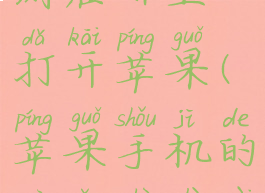 dǎ kāi píng guǒ
打开苹果(
píng guǒ shǒu jī de
苹果手机的